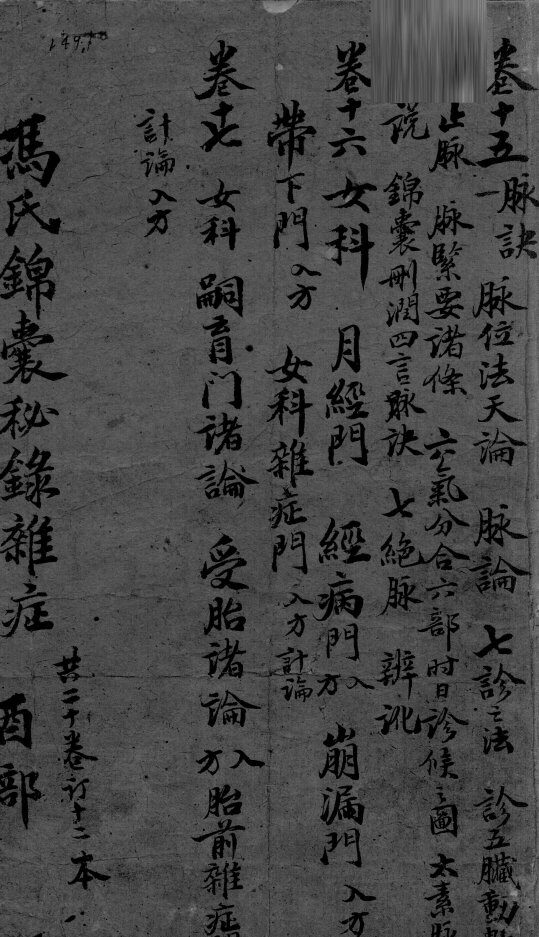 卷十五 脉訣 脉位法天論 脉論 七診之法 診五臟動
止脉 脉緊要諸條 六氣分合六部时日診候之圖 太素脉
說 錦囊刪潤四言脉訣 七絕脉 辨訛
卷十六 女科 月經門 經病門入方 崩漏門入方
帶下門入方 女科雜症門入方計論
卷十七 女科 嗣育门諸論 受胎諸論入方 胎前雜症
計論入方
馮氏錦囊秘錄雜症 酉部
共二十卷订十二本
149.18